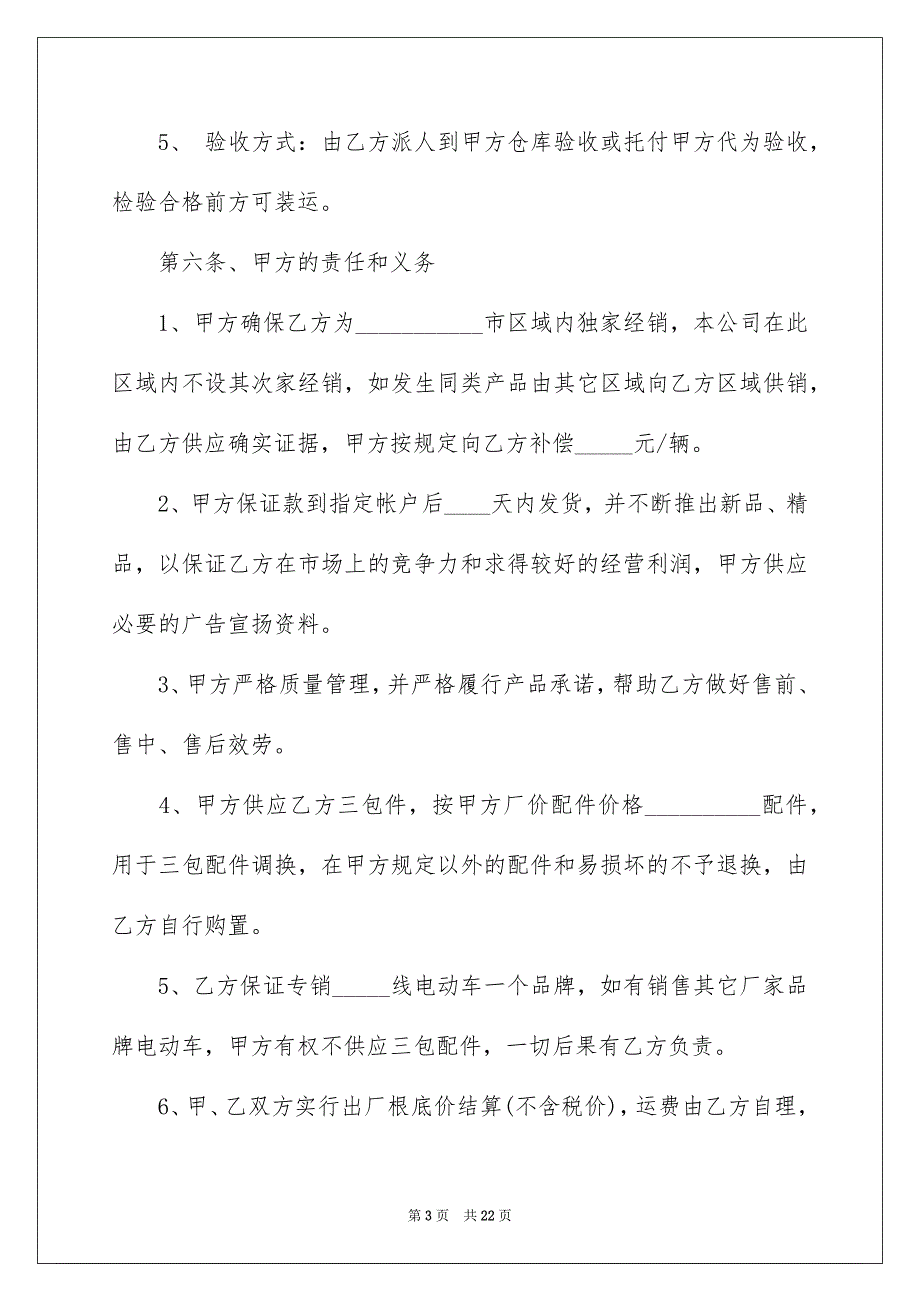 5、 验收方式：由乙方派人到甲方仓库验收或托付甲方代为验收，
检验合格前方可装运。
第六条、甲方的责任和义务
1、甲方确保乙方为___________市区域内独家经销，本公司在此
区域内不设其次家经销，如发生同类产品由其它区域向乙方区域供销，
由乙方供应确实证据，甲方按规定向乙方补偿_____元/辆。
2、甲方保证款到指定帐户后____天内发货，并不断推出新品、精
品，以保证乙方在市场上的竞争力和求得较好的经营利润，甲方供应
必要的广告宣扬资料。
3、甲方严格质量管理，并严格履行产品承诺，帮助乙方做好售前、
售中、售后效劳。
4、甲方供应乙方三包件，按甲方厂价配件价格__________配件，
用于三包配件调换，在甲方规定以外的配件和易损坏的不予退换，由
乙方自行购置。
5、乙方保证专销_____线电动车一个品牌，如有销售其它厂家品
牌电动车，甲方有权不供应三包配件，一切后果有乙方负责。
6、甲、乙双方实行出厂根底价结算(不含税价)，运费由乙方自理，
第 3 页 共 22 页